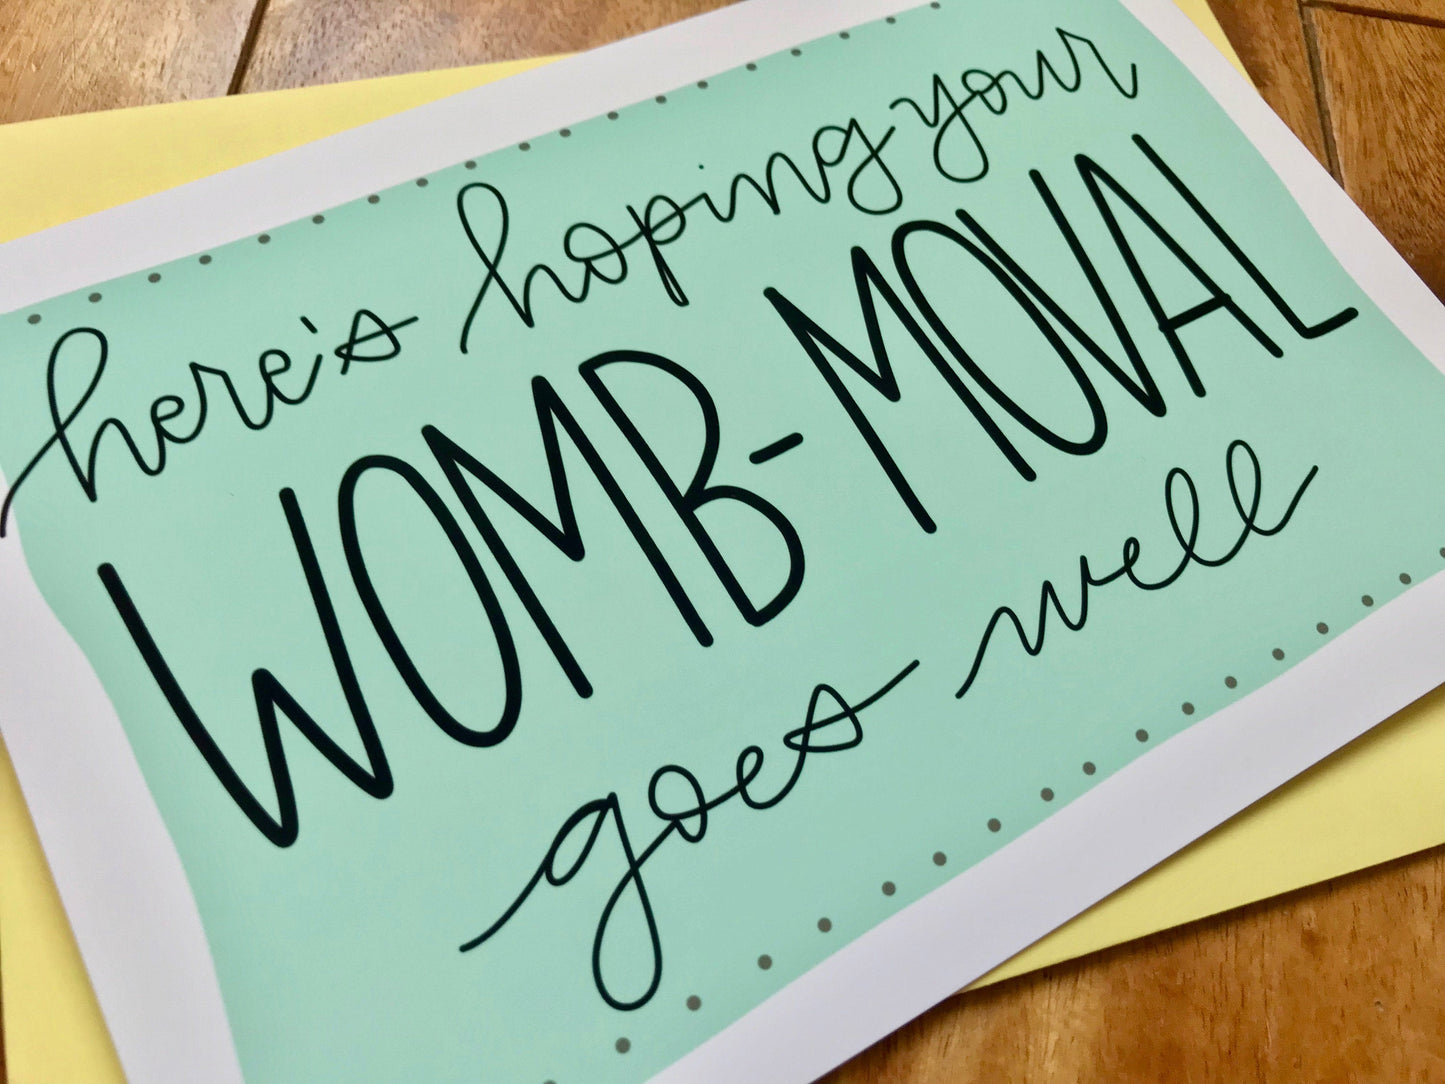 here's hoping your
WOMB-MOVAL
goes well